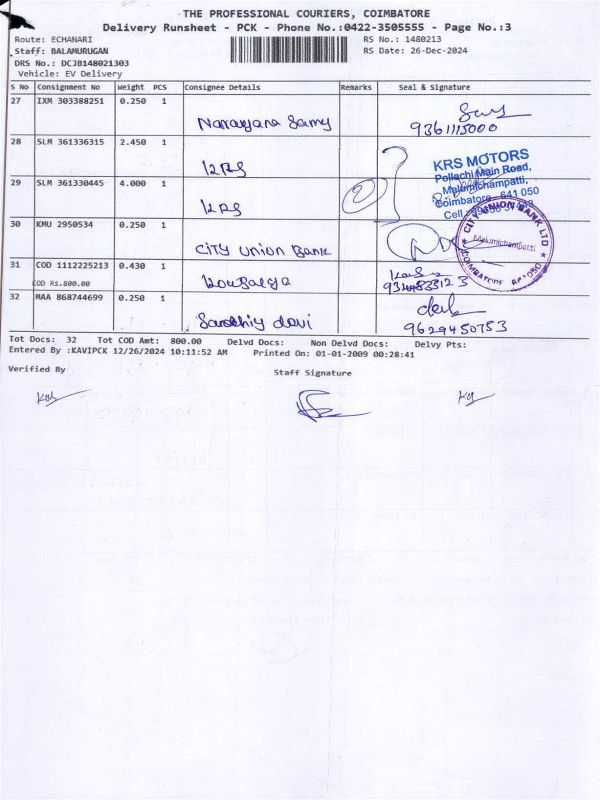 THE PROFESSIONAL COURIERS, COIMBATORE
Delivery Runsheet - PCK - Phone No.:0422-3505555 - Page No.:3
Route: ECHANARI RS No.: 1480213
Staff: BALAMURUGAN RS Date: 26-Dec-2024
DRS No.: DCJB148021303
Vehicle: EV Delivery
S No Consignment No Weight PCS Consignee Details Remarks Seal & Signature
27 IXM 303388251 0.250 1
Narrayana Samy 9361115000
28 SLM 361336315 2.450 1
KRS
KRS MOTORS
Pollachi Main Road,
Malumichampatti,
Coimbatore - 641 050
Cell
29 SLM 361330445 4.000 1
KRS
2
30 KMU 2950534 0.250 1
City Union Bank
CITY UNION BANK LTD
Malumichampatti
COIMBATORE
31 COD 1112225213 0.430 1
COD Rs.800.00
Kousalya
32 MAA 868744699 0.250 1
9629450753
Tot Docs: 32 Tot COD Amt: 800.00 Delvd Docs: Non Delvd Docs: Delvy Pts:
Entered By :KAVIPCK 12/26/2024 10:11:52 AM Printed On: 01-01-2009 00:28:41
Verified By Staff Signature